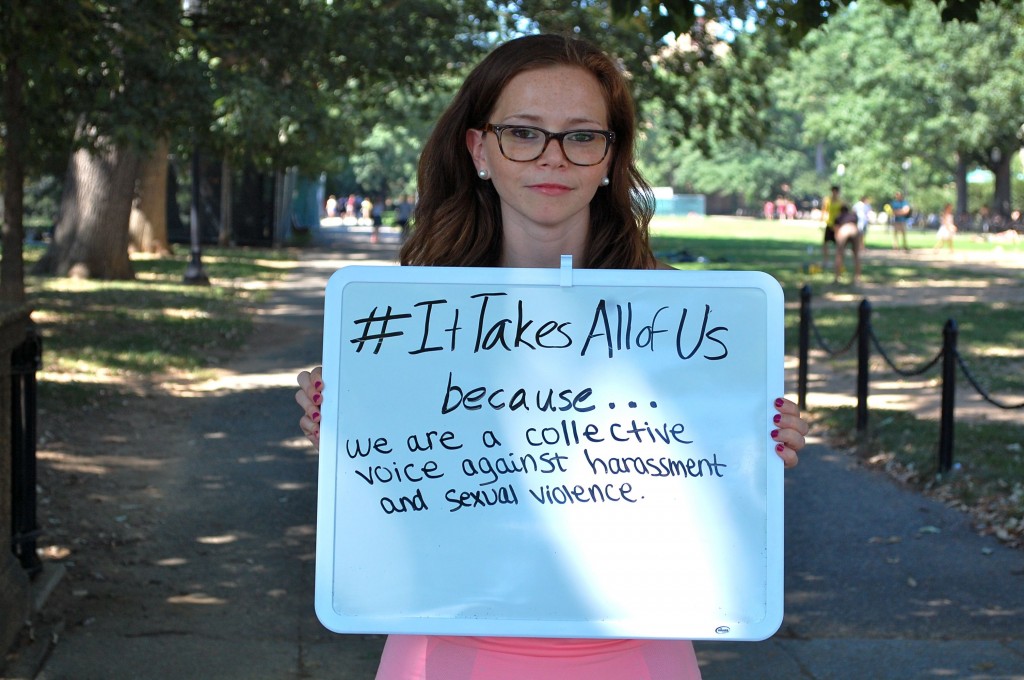 #ItTakesAllofUs
because...
we are a collective
voice against harassment
and sexual violence.